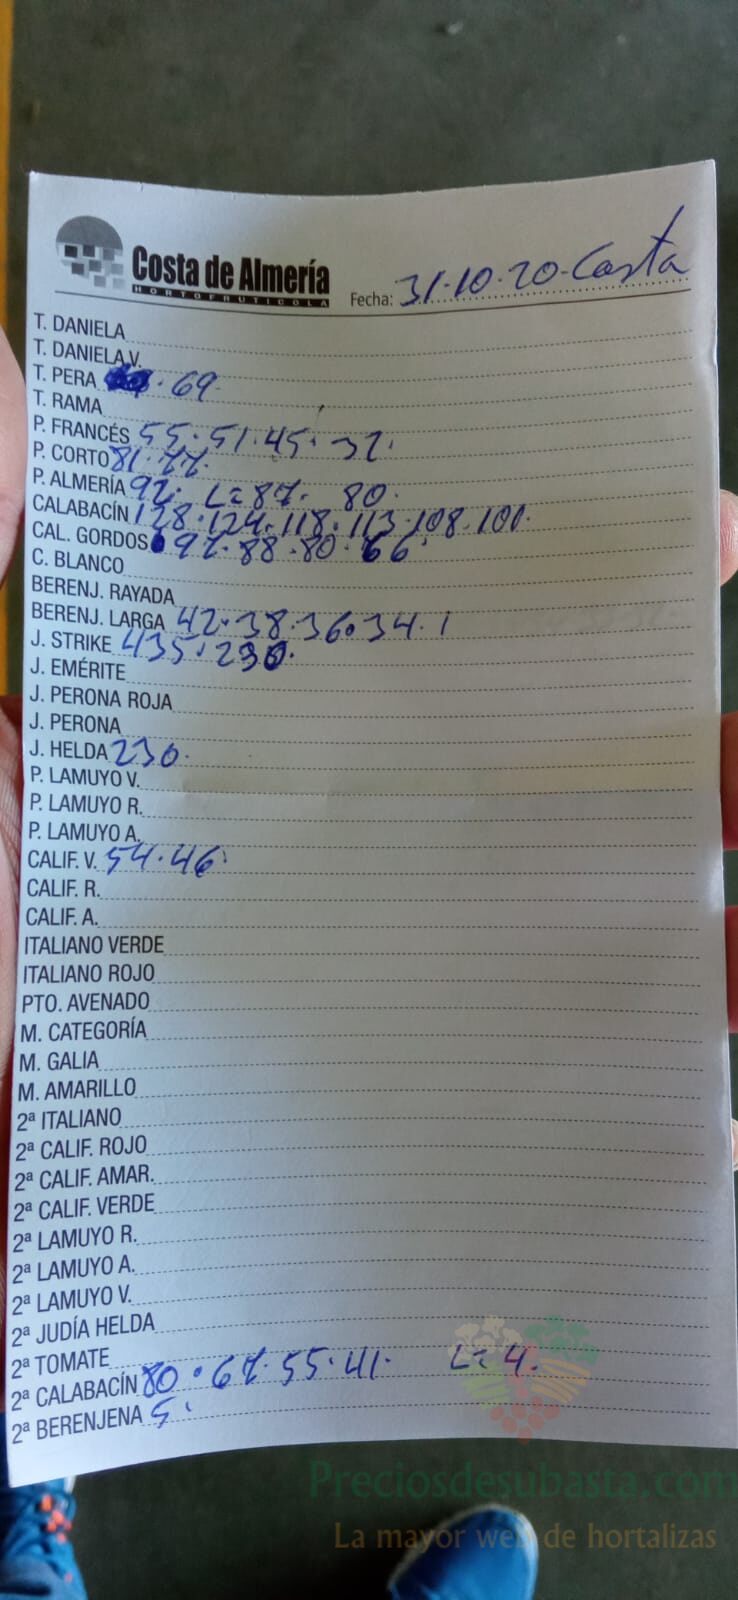 Costa de Almería
HORTOFRUTICOLA
Fecha: 31-10-20-Costa
T. DANIELA
T. DANIELA V.
T. PERA . 69
T. RAMA
P. FRANCÉS 55.51.45.37.
P. CORTO 81.77.
P. ALMERÍA 92. L=87. 80.
CALABACÍN 128.124.118.113.108.100.
CAL. GORDOS 97.88.80.66.
C. BLANCO
BERENJ. RAYADA
BERENJ. LARGA 42.38.36.34.
J. STRIKE 435.230.
J. EMÉRITE
J. PERONA ROJA
J. PERONA
J. HELDA 230.
P. LAMUYO V.
P. LAMUYO R.
P. LAMUYO A.
CALIF. V. 54.46.
CALIF. R.
CALIF. A.
ITALIANO VERDE
ITALIANO ROJO
PTO. AVENADO
M. CATEGORÍA
M. GALIA
M. AMARILLO
2ª ITALIANO
2ª CALIF. ROJO
2ª CALIF. AMAR.
2ª CALIF. VERDE
2ª LAMUYO R.
2ª LAMUYO A.
2ª LAMUYO V.
2ª JUDÍA HELDA
2ª TOMATE
2ª CALABACÍN 80.67.55.41. L=4.
2ª BERENJENA 5.
Preciosdesubasta.com
La mayor web de hortalizas